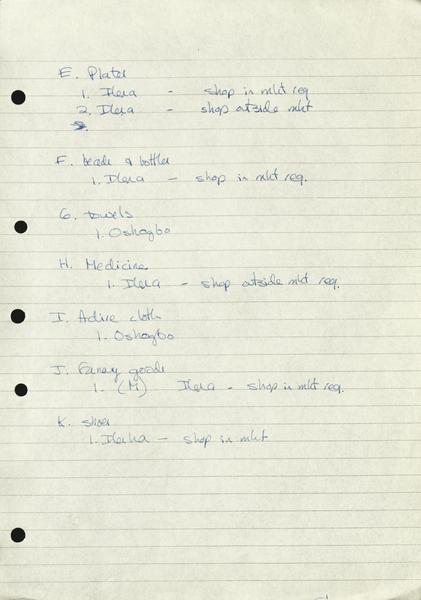 E. Plates
1. Ilesa - shop in mkt req
2. Ilesa - shop outside mkt
F. beads & bottles
1. Ilesa - shop in mkt req.
G. towels
1. Oshogbo
H. Medicine
1. Ilesa - shop outside mkt req.
I. Adire cloth
1. Oshogbo
J. Fancy goods
1. (M) Ilesa - shop in mkt req.
K. shoes
1. Ilesha - shop in mkt